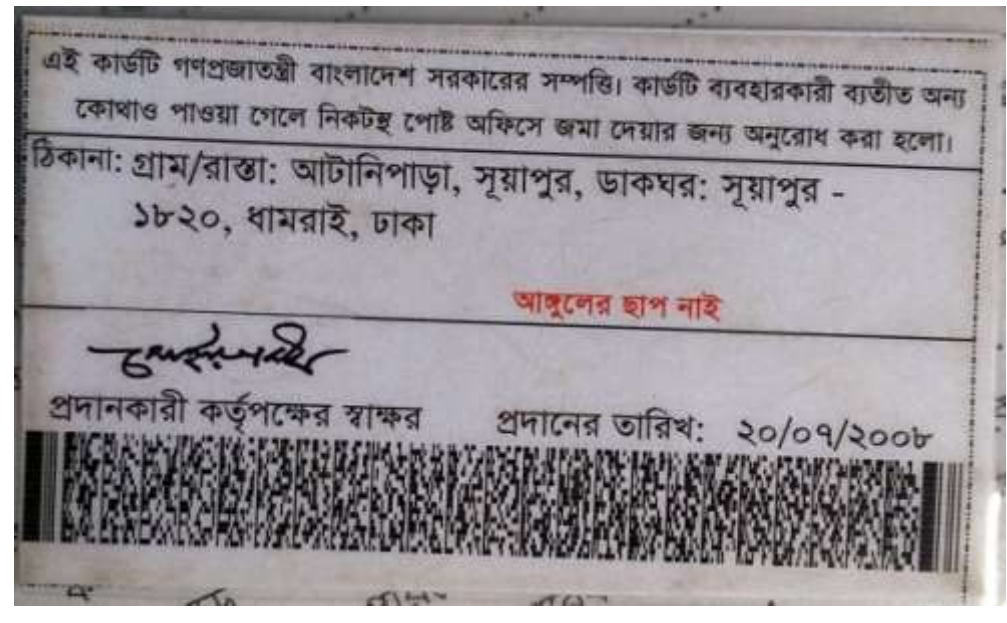 এই কার্ডটি গণপ্রজাতন্ত্রী বাংলাদেশ সরকারের সম্পত্তি। কার্ডটি ব্যবহারকারী ব্যতীত অন্য
কোথাও পাওয়া গেলে নিকটস্থ পোষ্ট অফিসে জমা দেয়ার জন্য অনুরোধ করা হলো।
ঠিকানা: গ্রাম/রাস্তা: আটানিপাড়া, সূয়াপুর, ডাকঘর: সূয়াপুর -
১৮২০, ধামরাই, ঢাকা
আঙ্গুলের ছাপ নাই
প্রদানকারী কর্তৃপক্ষের স্বাক্ষর প্রদানের তারিখ: ২০/০৭/২০০৮